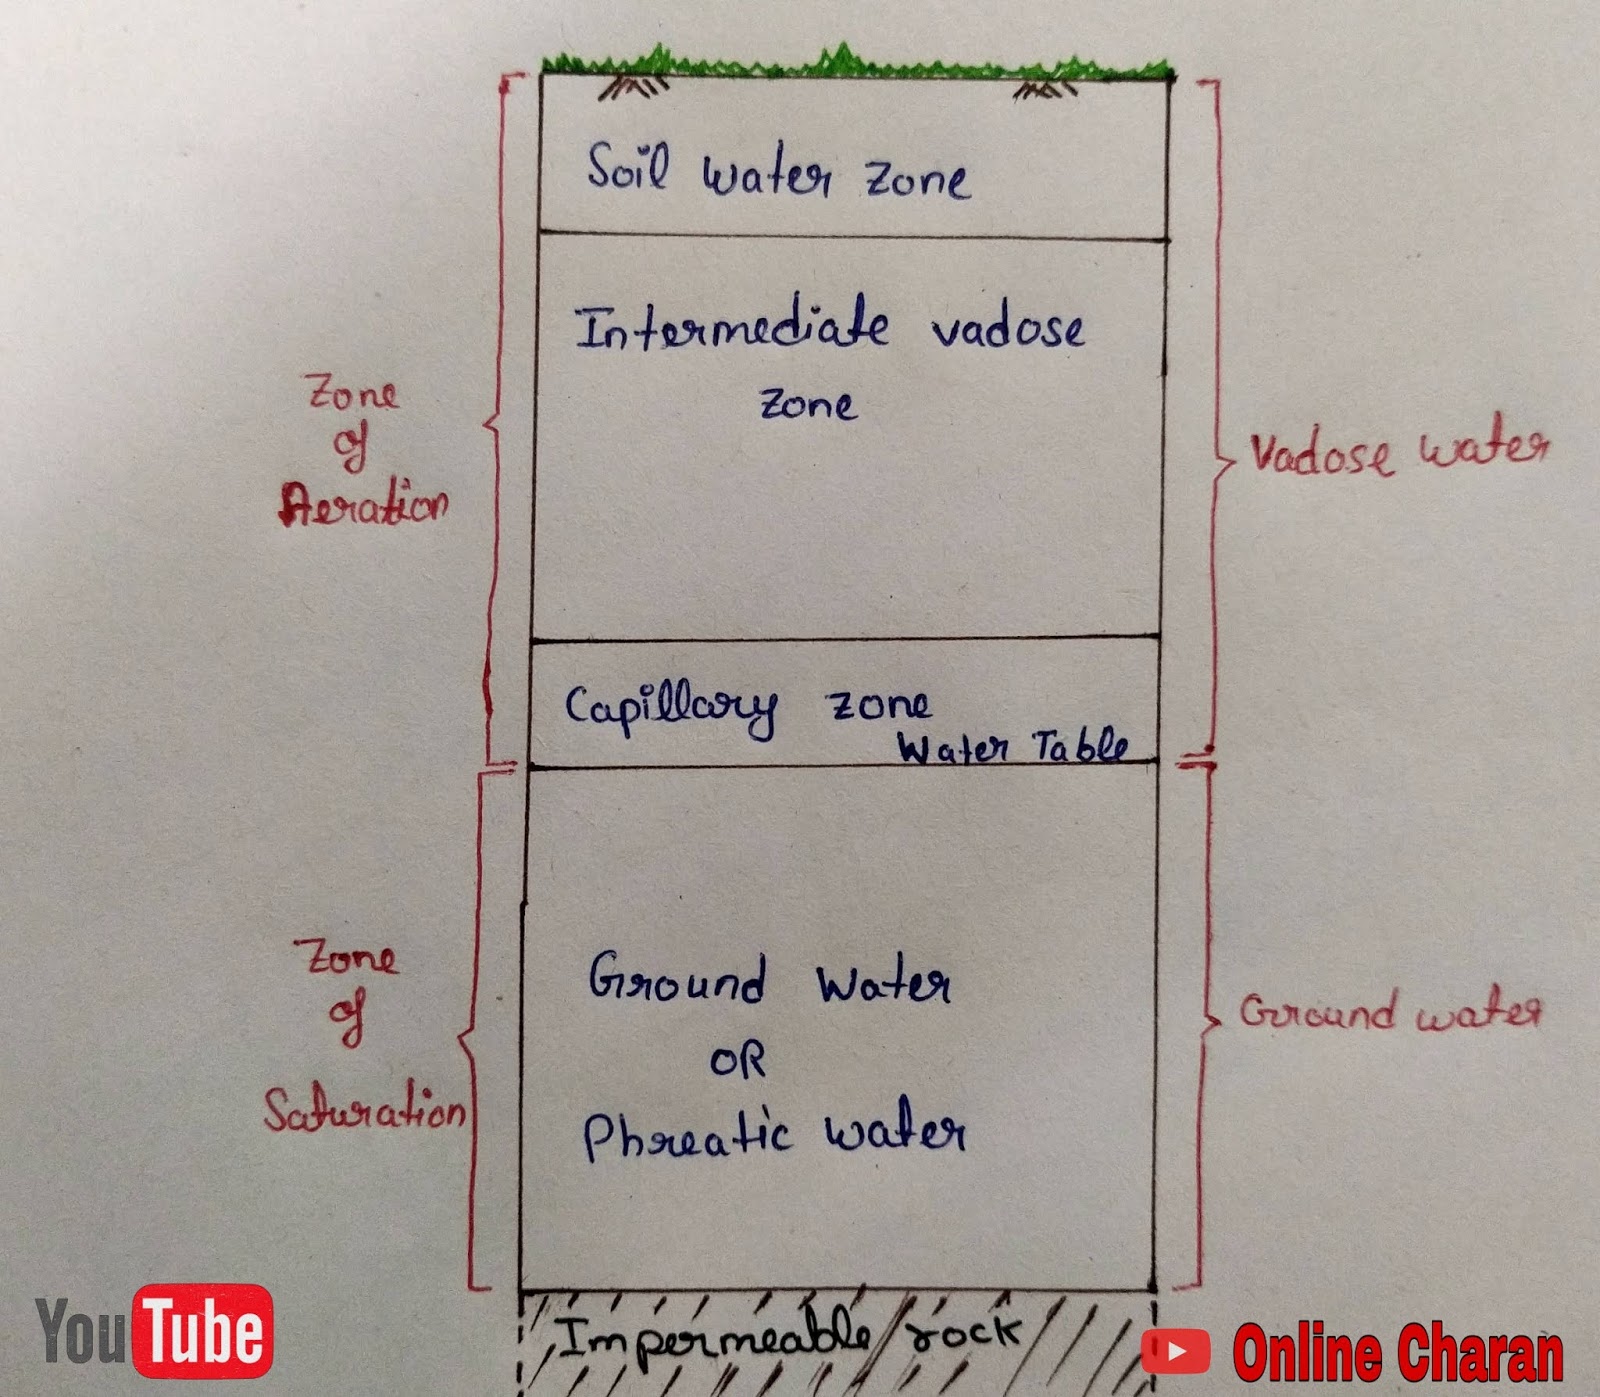 Soil water zone
Intermediate vadose
zone
Zone
of
Aeration
Vadose water
Capillary zone
Water Table
Zone
of
Saturation
Ground Water
OR
Phreatic water
Ground water
Impermeable rock
YouTube
Online Charan